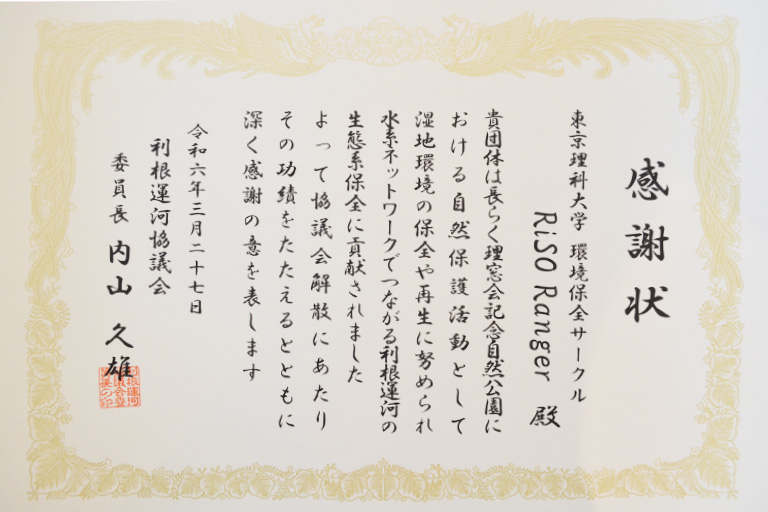 感謝状
東京理科大学 環境保全サークル
RiSO Ranger 殿
貴団体は長らく理窓会記念自然公園に
おける自然保護活動として
湿地環境の保全や再生に努められ
水系ネットワークでつながる利根運河の
生態系保全に貢献されました
よって協議会解散にあたり
その功績をたたえるとともに
深く感謝の意を表します
令和六年三月二十七日
利根運河協議会
委員長 内山 久雄